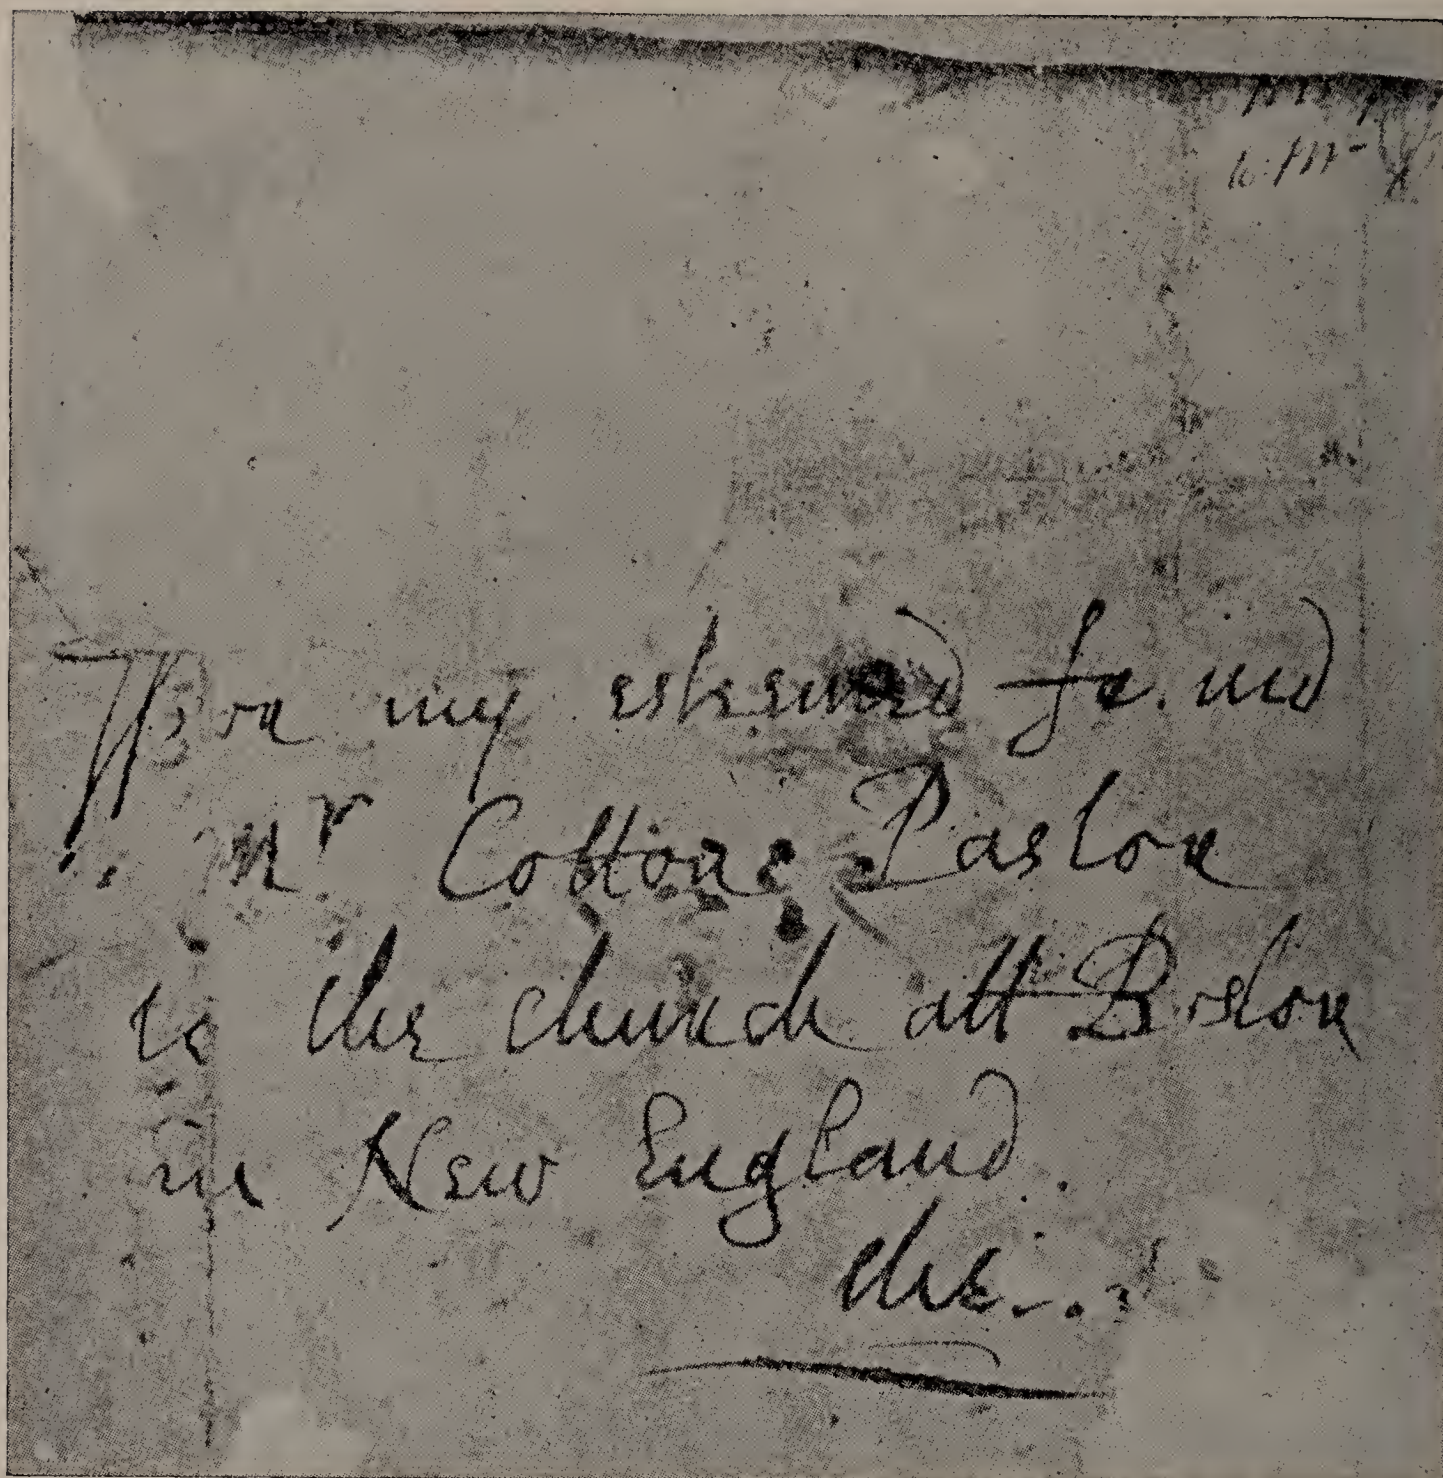 ffor my esteemed freind
Mr Cottone Pastor
to the church att Boston
in New England
these